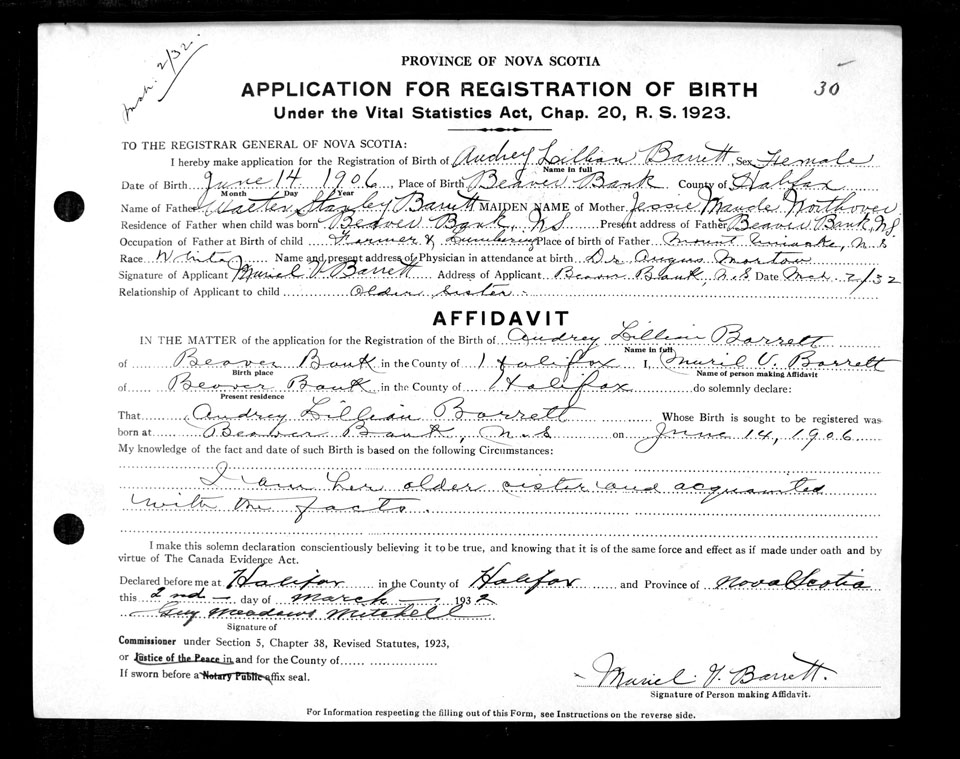 mch. 2/32.
30
PROVINCE OF NOVA SCOTIA
APPLICATION FOR REGISTRATION OF BIRTH
Under the Vital Statistics Act, Chap. 20, R. S. 1923.
TO THE REGISTRAR GENERAL OF NOVA SCOTIA:
I hereby make application for the Registration of Birth of Audrey Lillian Barrett Sex Female
Name in full
Date of Birth June 14 1906 Place of Birth Beaver Bank County of Halifax
Month Day Year
Name of Father Walter Stanley Barrett MAIDEN NAME of Mother Jessie Maude Northover
Residence of Father when child was born Beaver Bank, NS Present address of Father Beaver Bank, NS
Occupation of Father at Birth of child Farmer & Lumbering Place of birth of Father Mount Uniacke, N.S
Race White Name and present address of Physician in attendance at birth Dr. Angus Morton
Signature of Applicant Muriel V Barrett Address of Applicant Beaver Bank, N.S Date Mch. 2/32
Relationship of Applicant to child Older Sister
AFFIDAVIT
IN THE MATTER of the application for the Registration of the Birth of Audrey Lillian Barrett
Name in full
of Beaver Bank in the County of Halifax I, Muriel V. Barrett
Birth place Name of person making Affidavit
of Beaver Bank in the County of Halifax do solemnly declare:
Present residence
That Audrey Lillian Barrett Whose Birth is sought to be registered was
born at Beaver Bank, N.S on June 14, 1906
My knowledge of the fact and date of such Birth is based on the following Circumstances:
I am her older sister and acquainted
with the facts.
I make this solemn declaration conscientiously believing it to be true, and knowing that it is of the same force and effect as if made under oath and by
virtue of The Canada Evidence Act.
Declared before me at Halifax in the County of Halifax and Province of Nova Scotia
this 2nd day of March 1932
Guy Meadows Mitchell
Signature of
Commissioner under Section 5, Chapter 38, Revised Statutes, 1923,
or Justice of the Peace in and for the County of
If sworn before a Notary Public affix seal.
Muriel V. Barrett.
Signature of Person making Affidavit.
For Information respecting the filling out of this Form, see Instructions on the reverse side.